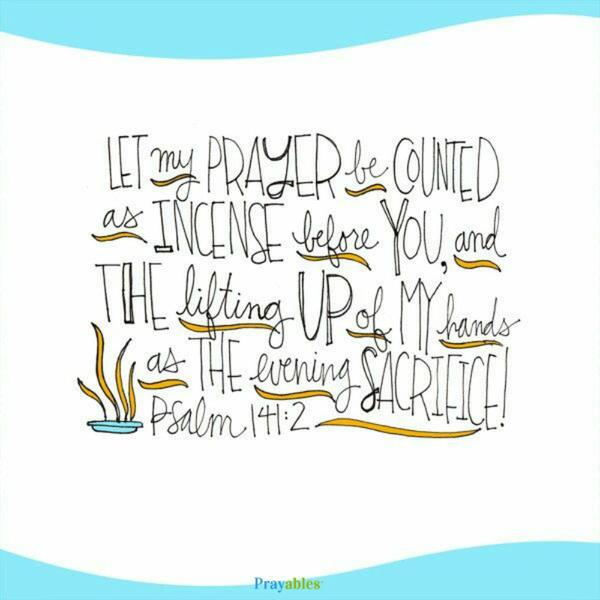 LET my PRAYER be COUNTED
as INCENSE before YOU, and
THE lifting UP of MY hands
as THE evening SACRIFICE!
Psalm 141:2
Prayables